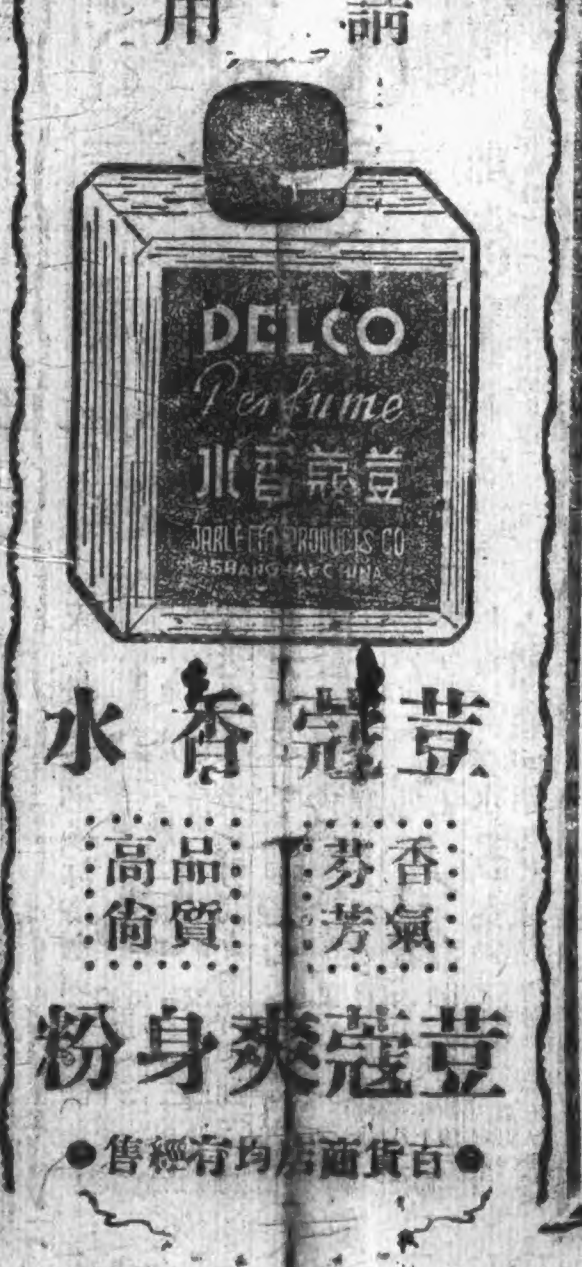 請用
DELCO
Perfume
荳蔻香水
JARLETTA PRODUCTS CO
SHANGHAI CHINA
荳蔻香水
香氣芬芳
品質高尚
荳蔻爽身粉
百貨商店均有經售